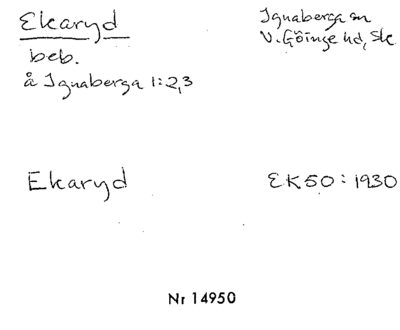 Ekaryd
Ignaberga sn
V. Göinge hd, Sk
beb.
å Ignaberga 1:2,3
Ekaryd
EK50:1930
Nr 14950